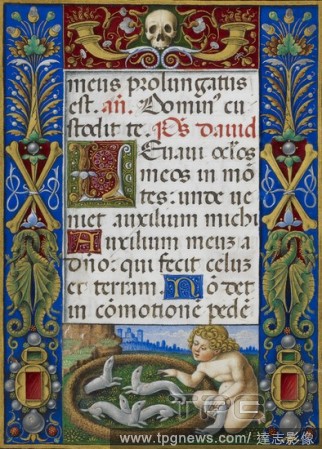 meus prolungatus
est. añ. Domin⁹ cu
stodit te. Ps dauid
Leuaui oc̅l̅os
meos in mō
tes: unde ue
niet auxilium michi
Auxilium meuʒ a
dño: qui fecit celuʒ
et terram. Nō det
in cōmotionē pedē
TPG
www.tpgnews.com/達志影像